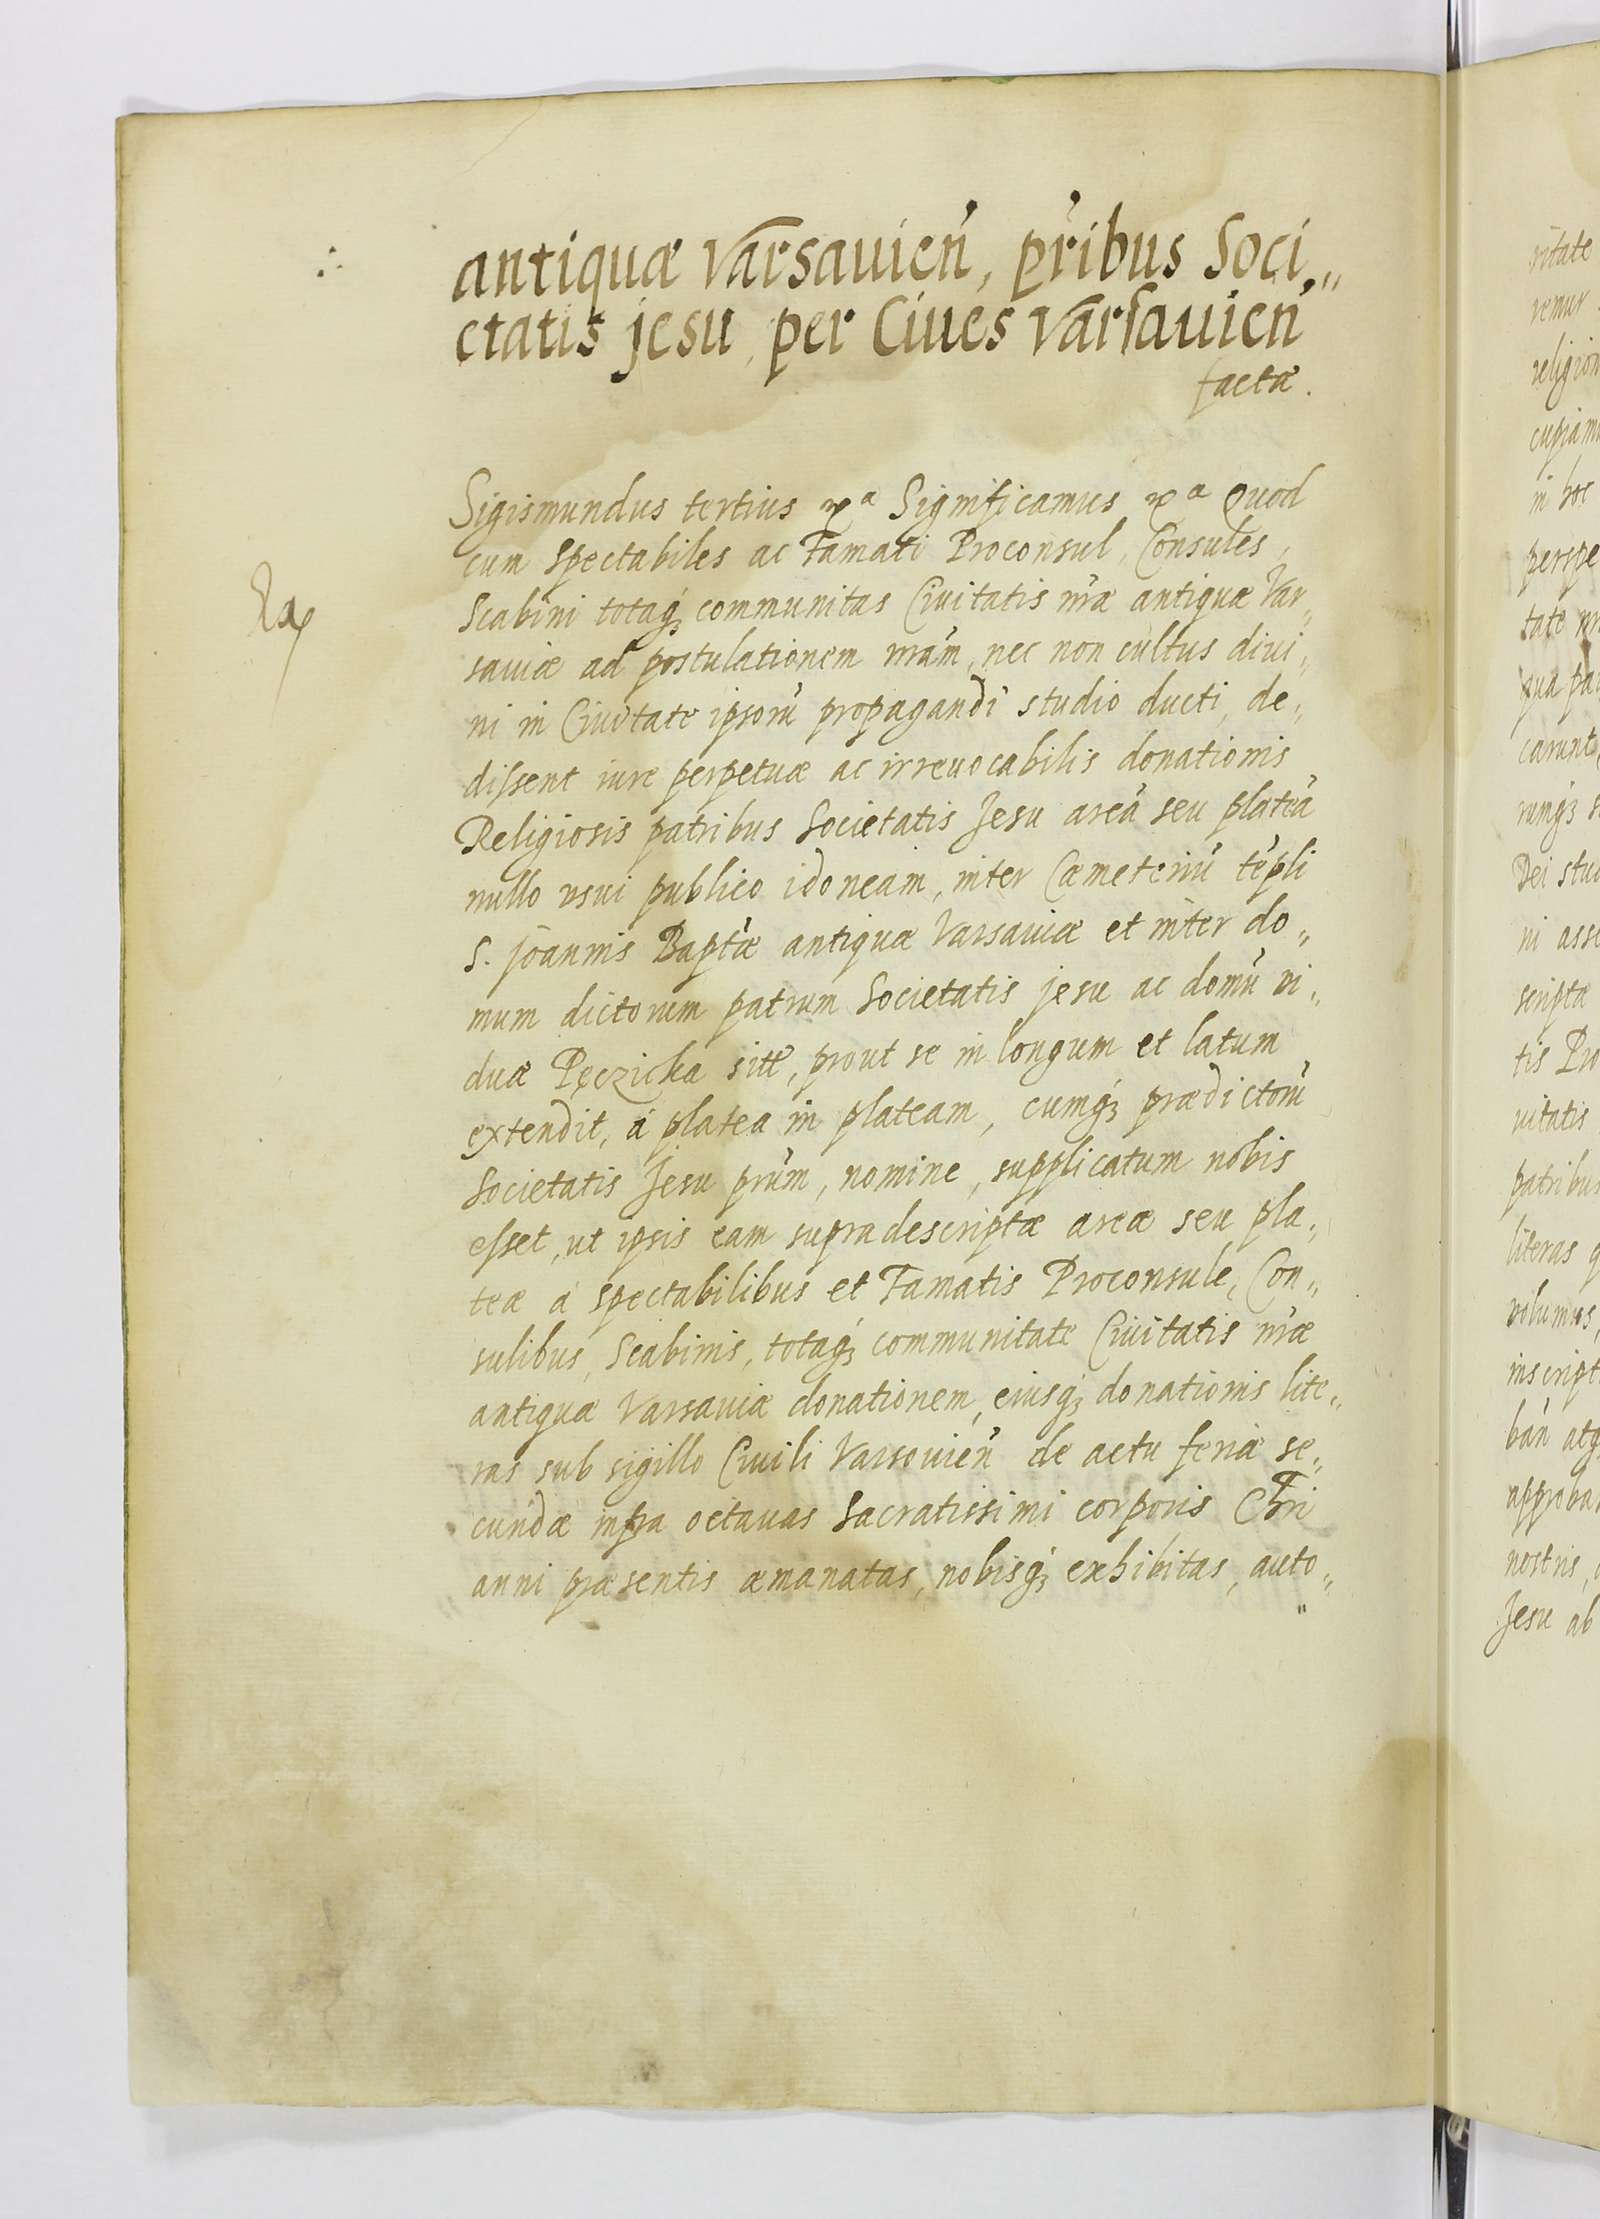 antiquæ Varsauień, pr̃ibus Soci„
etatis jesu, per Ciues Varsauień
factæ.
Sigismundus tertius Significamus Quod
cum Spectabiles ac Famati Proconsul, Consules,
Scabini totaq́₃ communitas Ciuitatis nr̃æ antiquæ Var„
sauiæ ad postulationem nr̃am, nec non cultus diui„
ni in Ciuitate ipsorũ propagandi studio ducti, de„
dissent iure perpetuæ ac irreuocabilis donationis
Religiosis patribus Societatis Jesu areã seu plateã
nullo vsui publico idoneam, inter Cæmeteriũ tẽpli
S. Joannis Baptæ antiquæ Varsauiæ et inter do„
mum dictorum patrum Societatis jesu ac domũ vi„
duæ Pęczicka sitẽ, prout se in longum et latum
extendit, á platea in plateam, cumq́₃ prædictorũ
Societatis Jesu pr̃um, nomine, supplicatum nobis
esset, ut ipsis eam supradescriptæ areæ seu pla„
teæ á spectabilibus et Famatis Proconsule, Con„
sulibus, Scabinis, totaq́₃ communitate Ciuitatis nr̃æ
antiquæ Varsauiæ donationem, eiusq́₃ donationis lite„
ras sub sigillo Ciuili Varsouień de actu feriæ se„
cundæ infra octauas Sacratissimi corporis Chr̃i
anni præsentis æmanatas, nobisq́₃ exhibitas, auto„
ritate
religion
in hoc
perspe
carunt
scriptæ
vitatis
patribus
literas
volumus,
nostris,
Jesu ab